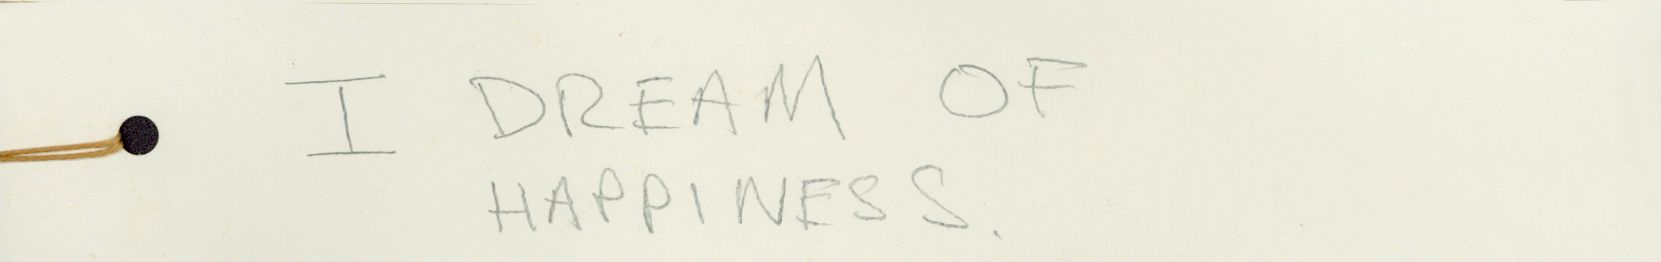 I DREAM OF
HAPPINESS.